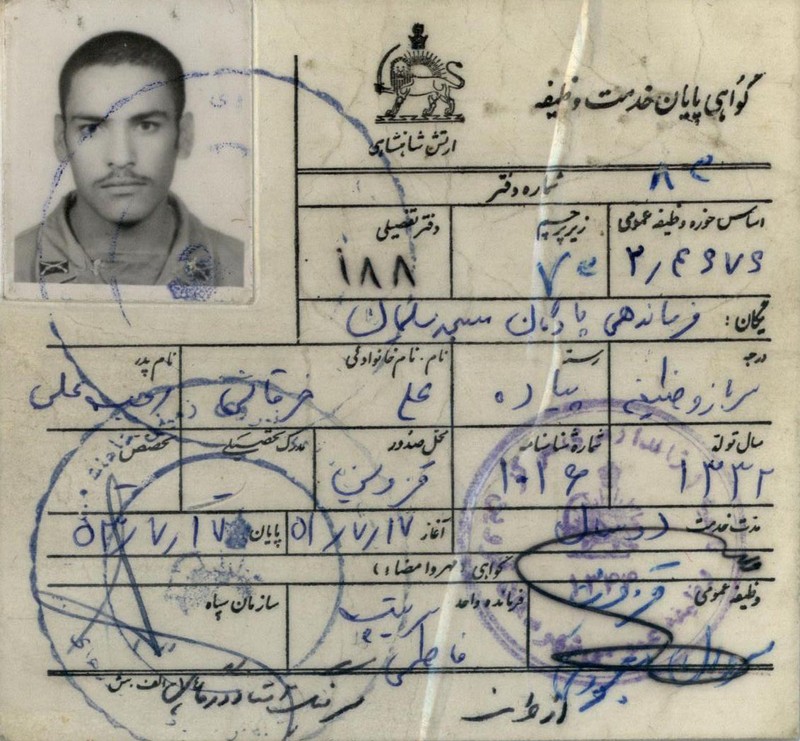 گواهی پایان خدمت وظیفه
ارتش شاهنشاهی
شماره دفتر ۸۳
اساس حوزه وظیفه عمومی زیر برچسب دفتر تفصیلی
۲٫۴۶۷۶ ۷۳ ۱۸۸
یگان: فرماندهی پادگان مسجد سلیمان
درجه رسته نام. نام خانوادگی نام پدر
سرباز وظیفه پیاده علی
سال تولد شماره شناسنامه محل صدور مدرک تحصیلی تخصص
۱۳۳۲ ۱۰۲۶ قزوین
مدت خدمت دو سال آغاز ۵۱/۷/۱۷ پایان ۵۳/۷/۱۷
گواهی (مهر و امضاء)
وظیفه عمومی فرمانده واحد سازمان سپاه
قزوین
فاطمی